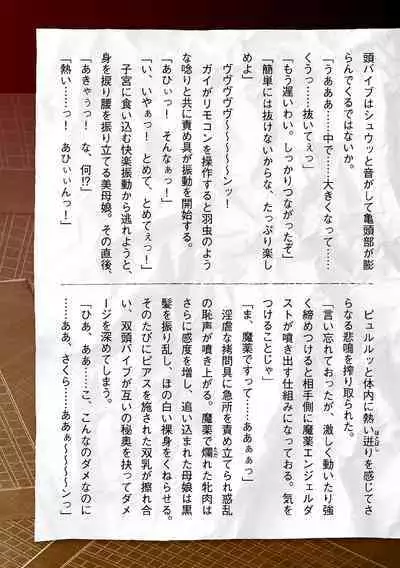 頭バイブはシュウッと音がして亀頭部が膨
らんでくるではないか。
「うああああ……中で……大きくなって……
くうっ……抜いてぇっ」
「もう遅いわい。しっかりつながったぞ」
「簡単には抜けないからな、たっぷり楽し
めよ」
ヴヴヴヴヴ〜〜〜〜〜ンッ！
ガイがリモコンを操作すると羽虫のよう
な唸りと共に責め具が振動を開始する。
「あひぃっ！　そんなぁっ！」
「い、いやぁっ！　とめて、とめてぇっ！」
子宮に食い込む快楽振動から逃れようと、
身を捩り腰を振り立てる美母娘。その直後、
「あきゃぅっ！　な、何!?」
「熱い……っ！　あひぃぃんっ！」
ピュルルッと体内に熱い迸りを感じてさ
らなる悲鳴を搾り取られた。
「言い忘れておったが、激しく動いたり強
く締めつけると相手側に魔薬エンジェルダ
ストが噴き出す仕組みになっておる。気を
つけることじゃ」
「ま、魔薬ですって……ああぁぁっ」
淫虐な拷問具に急所を責め立てられ惑乱
の恥声が噴き上がる。魔薬で爛れた牝肉は
さらに感度を増し、追い込まれた母娘は黒
髪を振り乱し、ほの白い裸身をくねらせる。
そのたびにピアスを施された双乳が擦れ合
い、双頭バイブが互いの秘奥を抉ってダメ
ージを深めてしまう。
「ひあ、ああ……こ、こんなのダメなのに
……ああ、さくら……ああぁ〜〜〜〜ンっ」